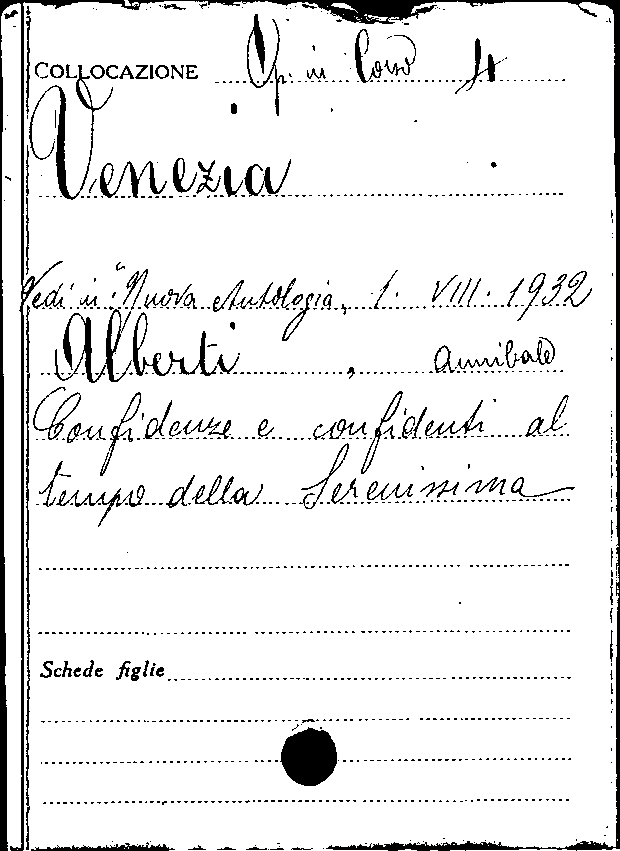 COLLOCAZIONE Op. in Corso 4
Venezia
Vedi in "Nuova Antologia, 1. VIII. 1932
Alberti, Annibale
Confidenze e confidenti al
tempo della Serenissima
Schede figlie